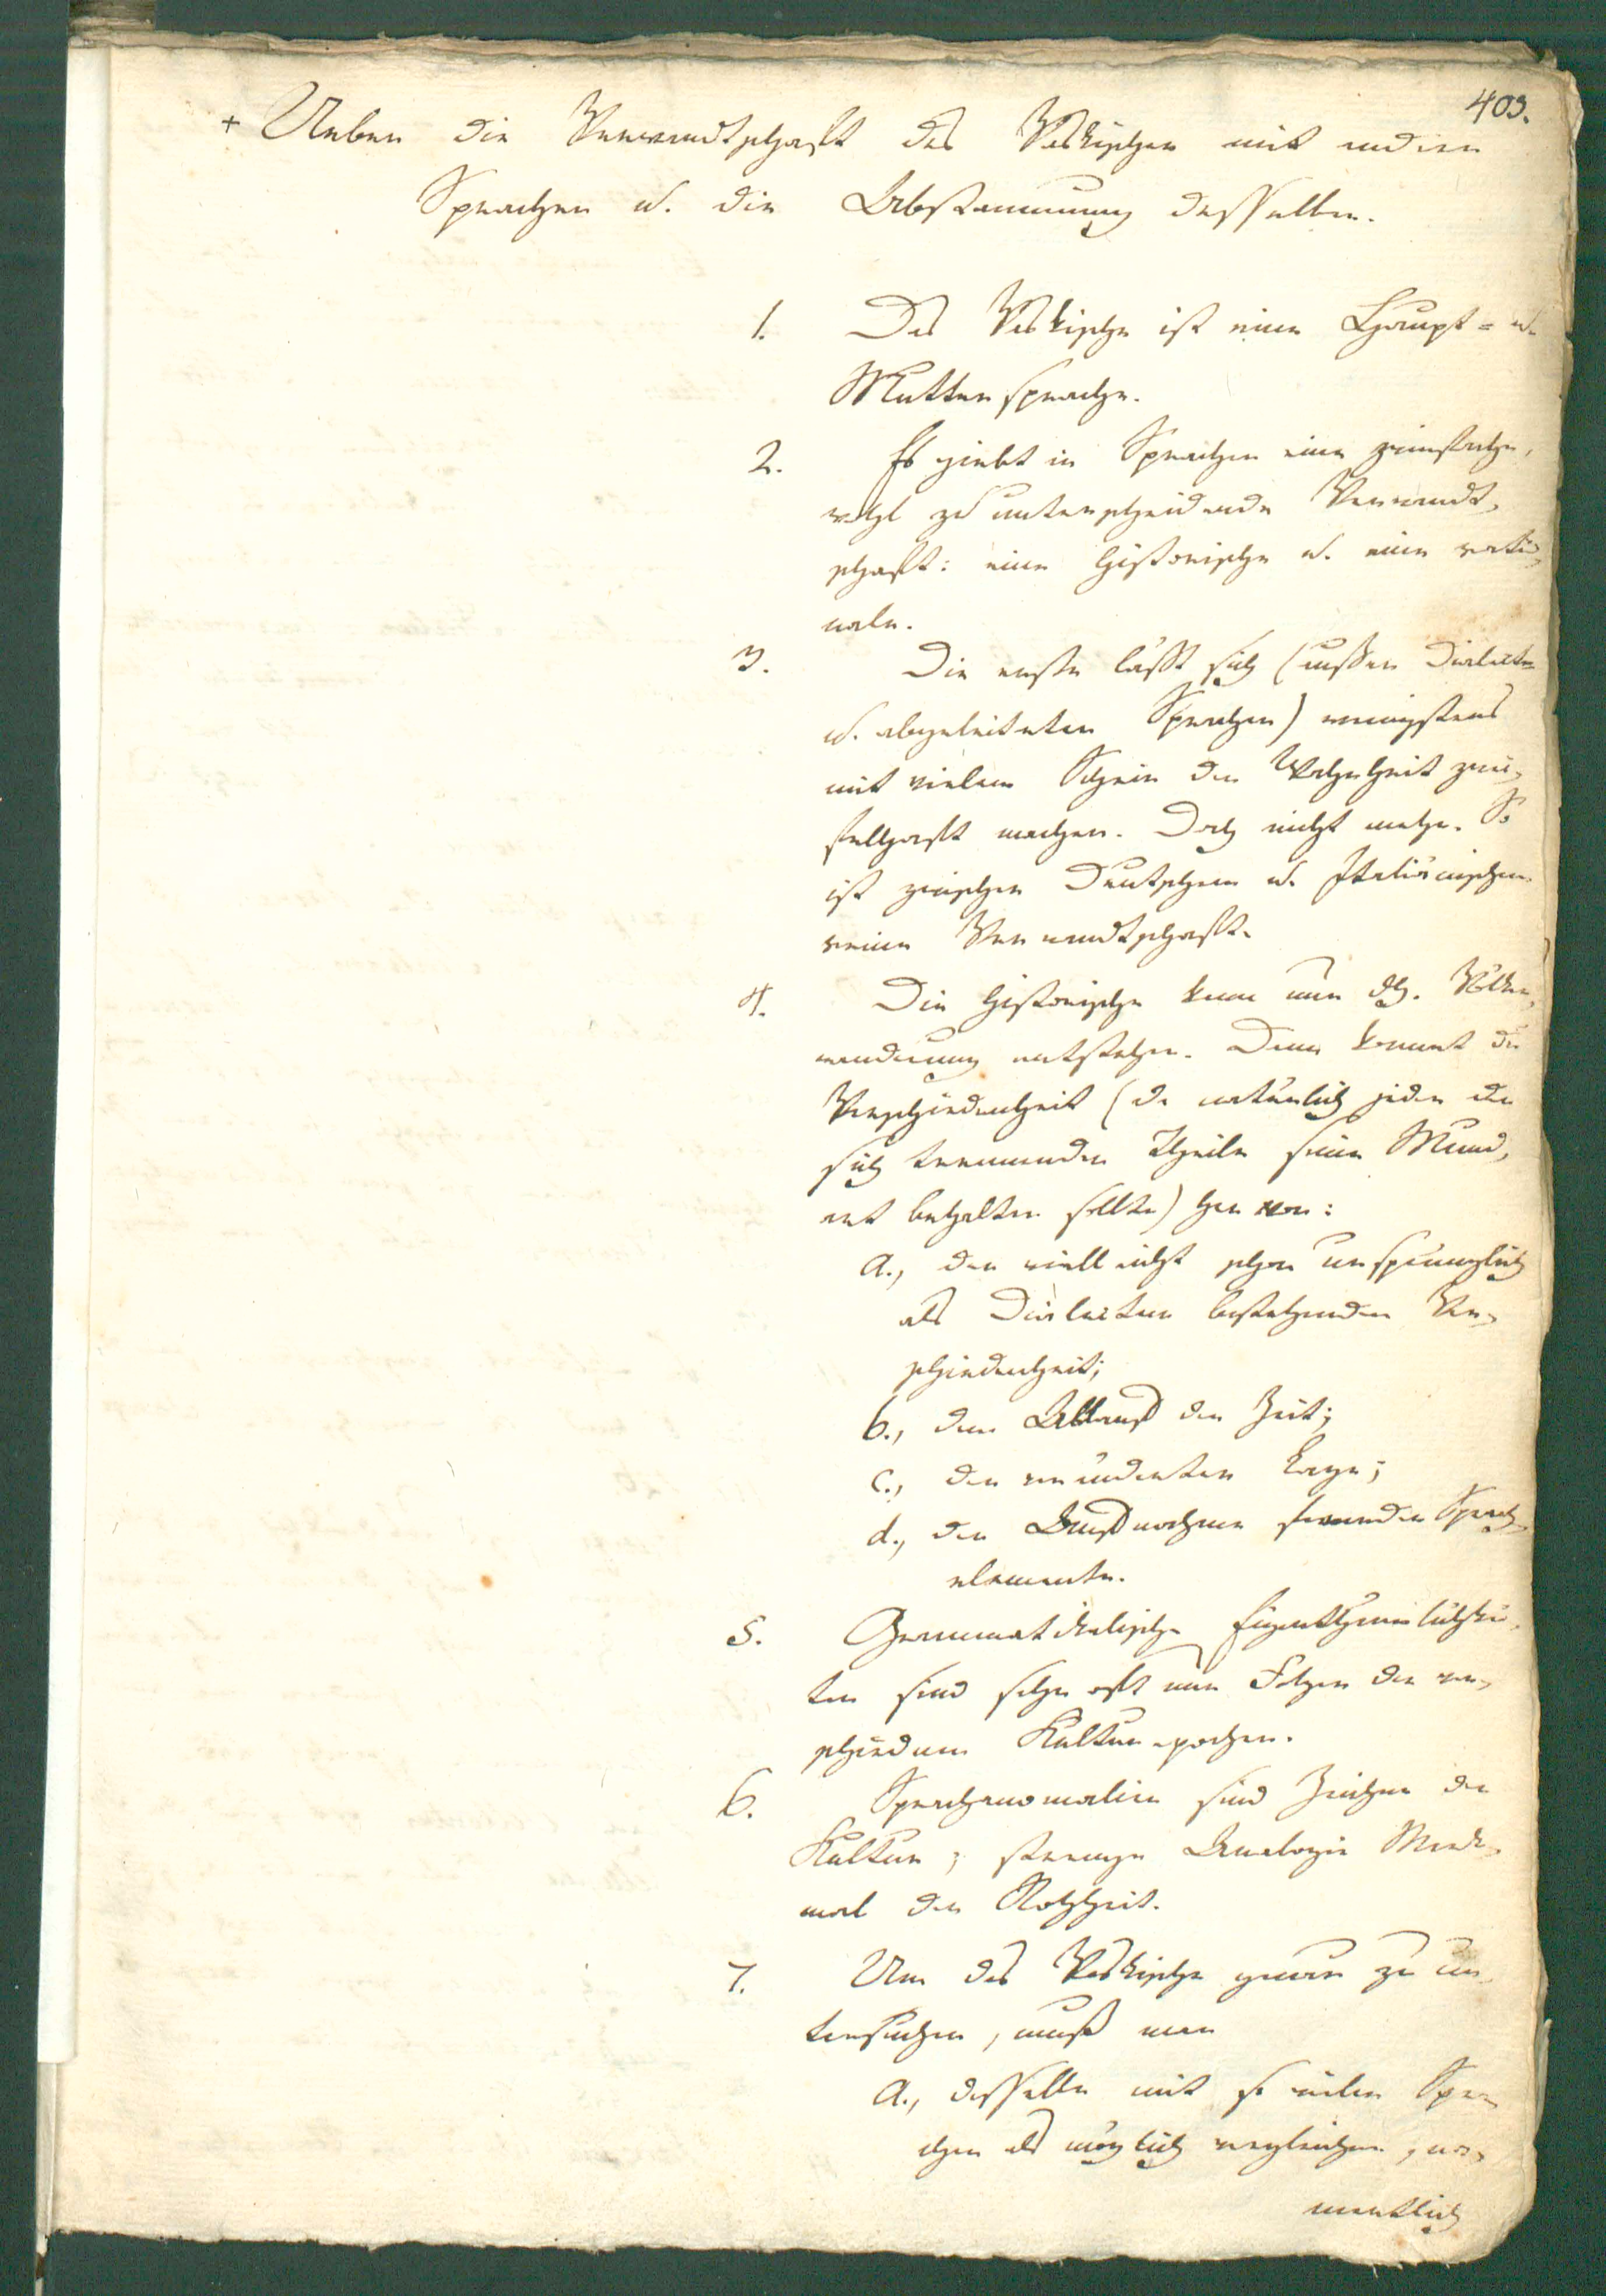 403.
+ Ueber die Verwandtschaft des Vaskischen mit andern
Sprachen u. die Abstammung desselben.
1. Das Vaskische ist eine Haupt= u.
Muttersprache.
2. Es giebt in Sprachen eine zwiefache,
wohl zu unterscheidende Verwandt-
schaft: eine historische u. eine ratio-
nale.
3. Die erste lässt sich (ausser Dialecten
u. abgeleiteten Sprachen) wenigstens
mit vielem Schein der Wahrheit zwei-
felhaft machen. Doch nicht mehr. So
ist zwischen Deutschem u. Italiänischem
reine Verwandtschaft.
4. Die historische kann nur dch. Völker-
wanderung entstehen. Dann kommt die
Verschiedenheit (da natürlich jeder der
sich trennenden Theile seine Mund-
art behalten sollte) her von:
a., der vielleicht schon ursprünglich
als Dialecten bestehenden Ver-
schiedenheit;
b., dem Ablauf der Zeit;
c., der veränderten Lage;
d., der Aufnahme fremder Sprach-
elemente.
5. Grammatikalische Eigenthümlichkei-
ten sind sehr oft nur Folgen der ver-
schiednen Kulturepochen.
6. Sprachanomalien sind Zeichen der
Kultur; strenge Analogie Merk-
mal der Rohheit.
7. Um das Vaskische genau zu un-
tersuchen, muß man
a., dasselbe mit so vielen Spra-
chen als möglich vergleichen, na-
mentlich